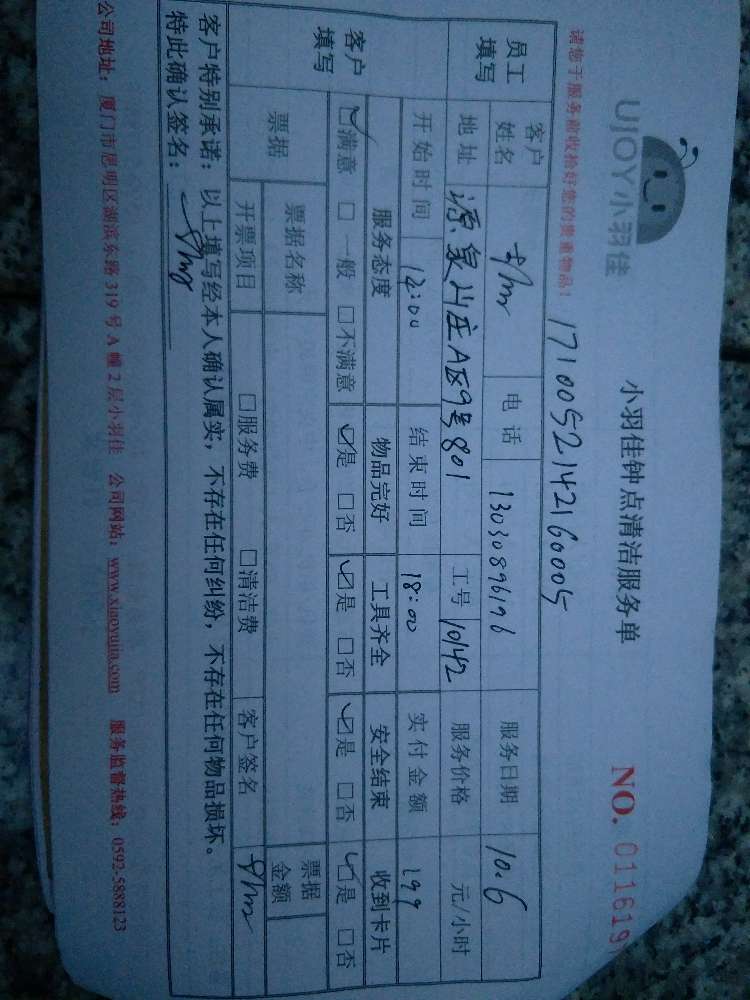 UJOY小羽佳
小羽佳钟点清洁服务单
NO. 011619
请您于服务前收拾好您的贵重物品!
1710052142160005
员工填写 客户姓名 电话 13030896196 服务日期 10.6
地址 源泉山庄A区9号801 工号 10142 服务价格 元/小时
开始时间 12:00 结束时间 18:00 实付金额 199
客户填写 服务态度 物品完好 工具齐全 安全结束 收到卡片
☑满意 □一般 □不满意 ☑是 □否 ☑是 □否 ☑是 □否 ☑是 □否
票据 票据名称 票据金额
开票项目 □服务费 □清洁费 客户签名
客户特别承诺:以上填写经本人确认属实,不存在任何纠纷,不存在任何物品损坏。
特此确认签名:
公司地址:厦门市思明区湖滨东路319号A幢2层小羽佳 公司网站:www.xiaoyujia.com 服务监督热线:0592-5888123